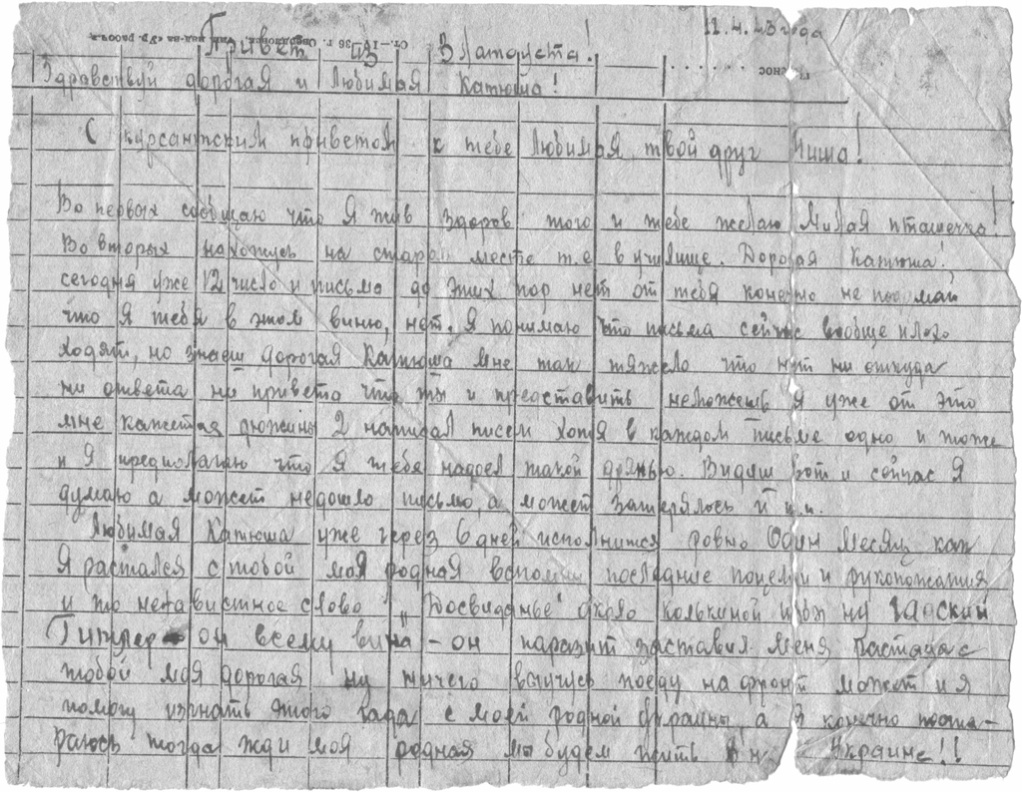 11.4.43 года
Привет из Златоуста!
Здравствуй дорогая и Любимая Катюша!
С курсантским приветом к тебе Любимая, твой друг Миша!
Во первых сообщаю что Я жив здоров того и тебе желаю Милая пташечка!
Во вторых нахожусь на старом месте т.е в училище. Дорогая Катюша!
сегодня уже 12 число и письма до этих пор нет от тебя конечно не подумай
что Я тебя в этом виню, нет, Я понимаю что письма сейчас вообще плохо
ходят, но знаеш дорогая Катюша мне так тяжело что нет ни откуда
ни ответа ни привета что ты и представить неможешь Я уже от это
мне кажется дюжины 2 написал писем хотя в каждом письме одно и тоже
и Я предполагаю что Я тебя надоел такой дрянью. Видиш вот и сейчас Я
думаю а может недошло письмо, а может затерялось и т.п.
Любимая Катюша уже через 6 дней исполнится ровно Один Месяц как
Я растался с тобой моя родная вспомни последние поцелуи и рукопожатия
и то ненавистное слово „Досвиданье" около Колькиной
Гитлер он всему вина - он паразит заставил меня растаца с
тобой моя дорогая ну ничего выучусь поеду на фронт может и я
помогу изгнать этого гада с моей родной Украины, а Я конечно поста-
раюсь тогда жди моя родная мы будем жить в Украине!!